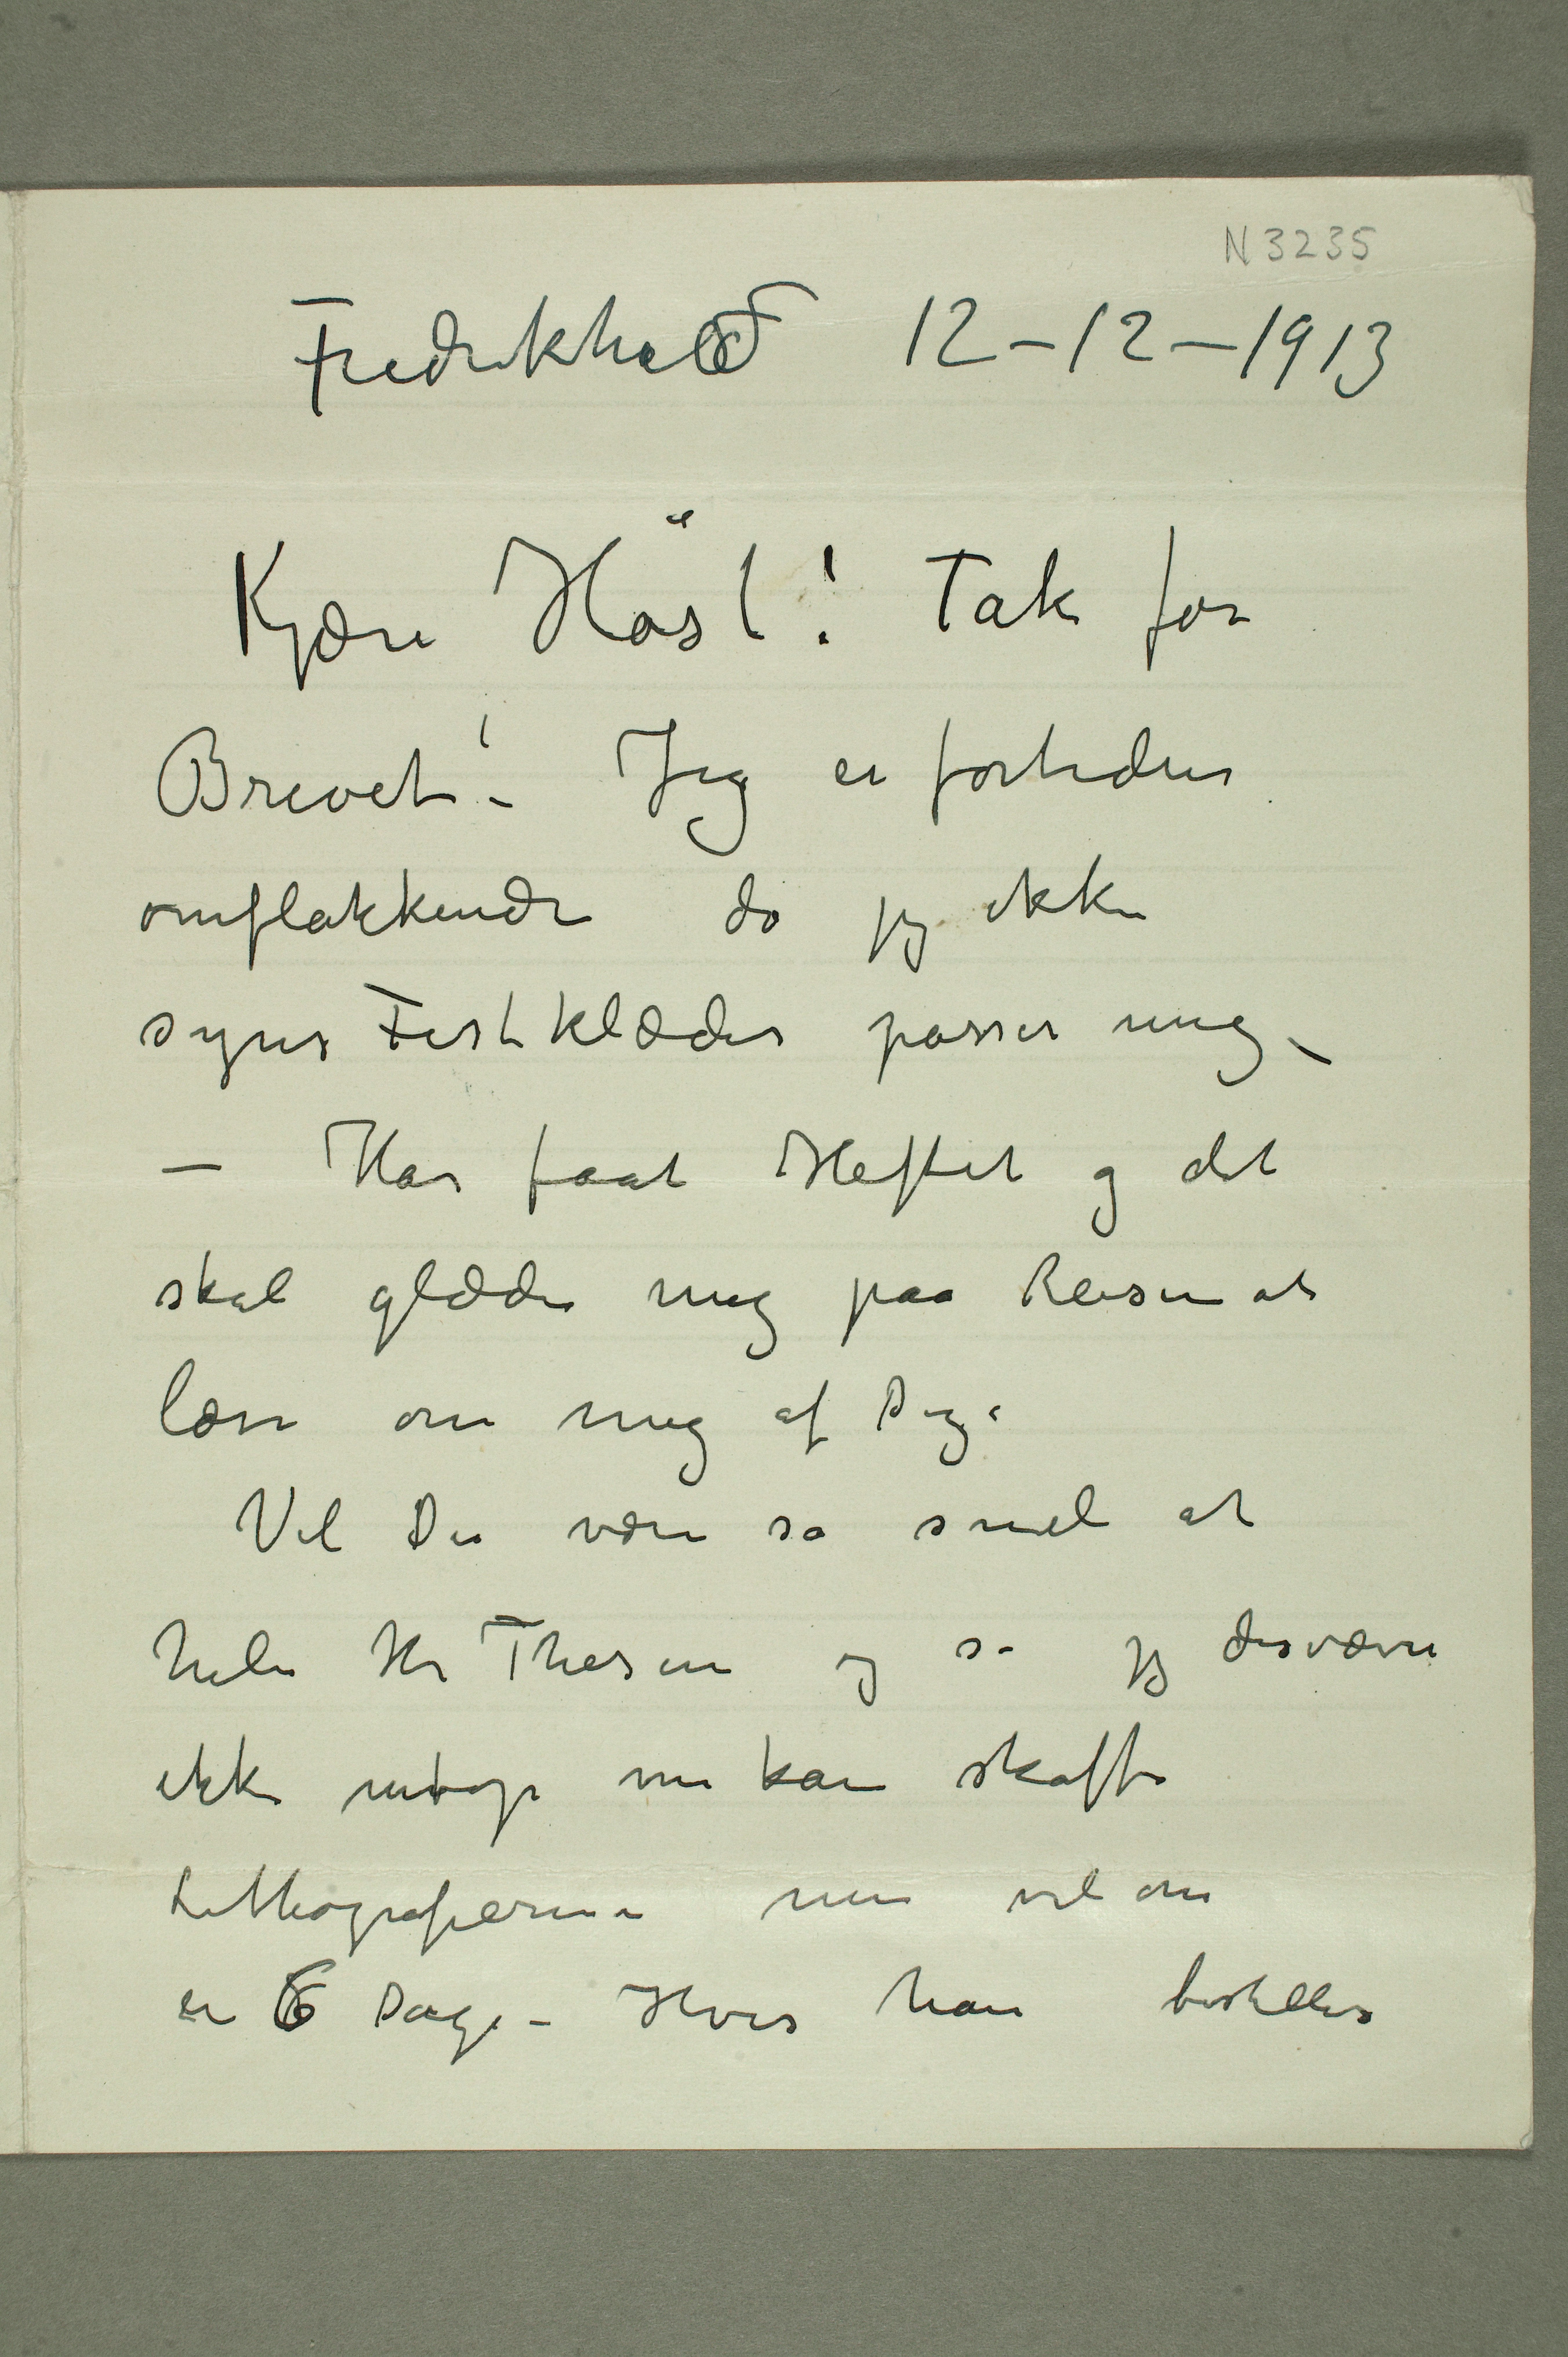 N 3235
Fredrikhald 12–12–1913
Kjære Höst! Tak for
Brevet! – Jeg er fortiden
omflakkende da jeg ikke
synes Festklæder passer mig –
– Har faat Heftet og det
skal glæde mig paa Reisen at
læse om mig af Dig.
Vil Du være så snil at
hilse Hr Thesen og så jeg desværre
ikke netop nu kan skaffe
Lithografierne men vel om
en 6 Dage – Hvis han bestiller